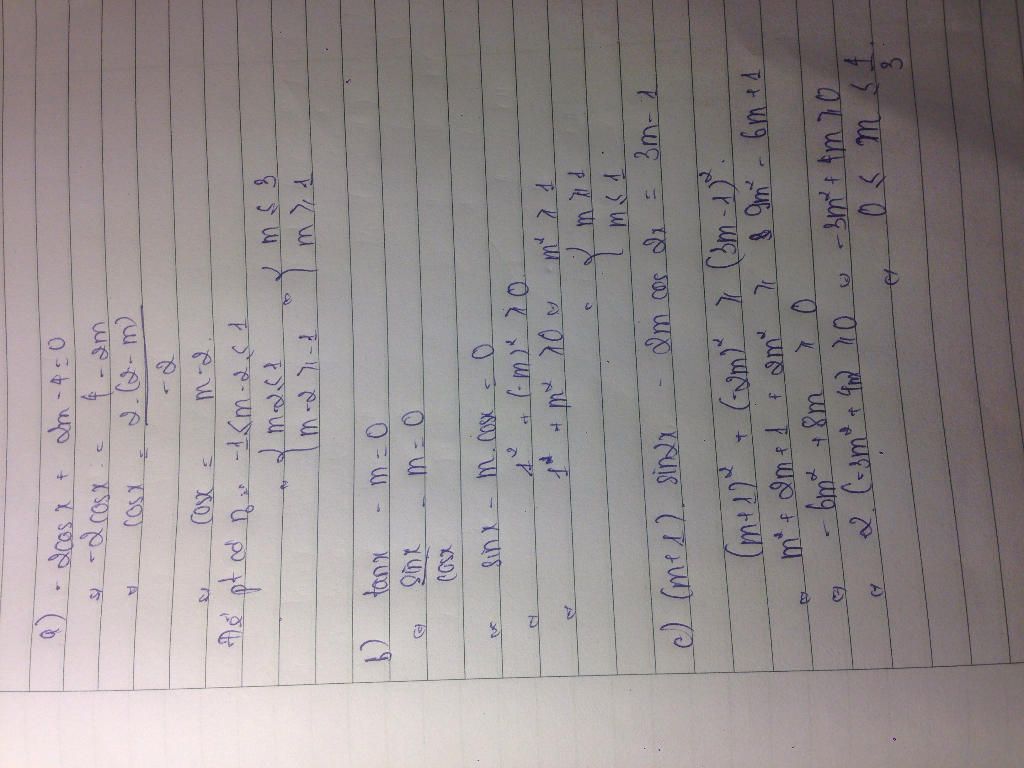 a) -2cosx + 2m - 4 = 0
⇔ -2cosx = 4 - 2m
⇔ cosx = 2.(2 - m) / -2
⇔ cosx = m - 2.
Để pt có n₀ ⇔ -1 ≤ m - 2 ≤ 1
⇔ { m - 2 ≤ 1 ⇔ { m ≤ 3
{ m - 2 ≥ -1 { m ≥ 1
b) tanx - m = 0
⇔ sinx / cosx - m = 0
⇔ sinx - m.cosx = 0
⇔ 1² + (-m)² ≥ 0
⇔ 1² + m² ≥ 0 ⇔ m² ≥ 1
⇔ { m ≥ 1
{ m ≤ 1
c) (m+1) sin2x - 2m cos 2x = 3m - 1
(m+1)² + (-2m)² ≥ (3m - 1)².
⇔ m² + 2m + 1 + 2m² ≥ 9m² - 6m + 1
⇔ -6m² + 8m ≥ 0
⇔ 2.(-3m² + 4m) ≥ 0 ⇔ -3m² + 4m ≥ 0
⇔ 0 ≤ m ≤ 4/3.